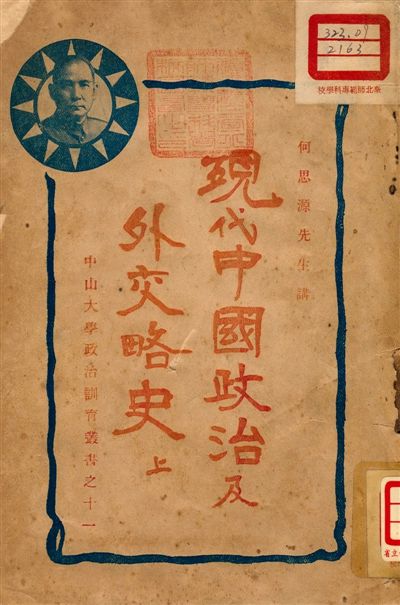 323.09
2163
臺北師範專科學校
何思源先生講
現代中國政治及
外交略史上
中山大學政治訓育叢書之十一
省立